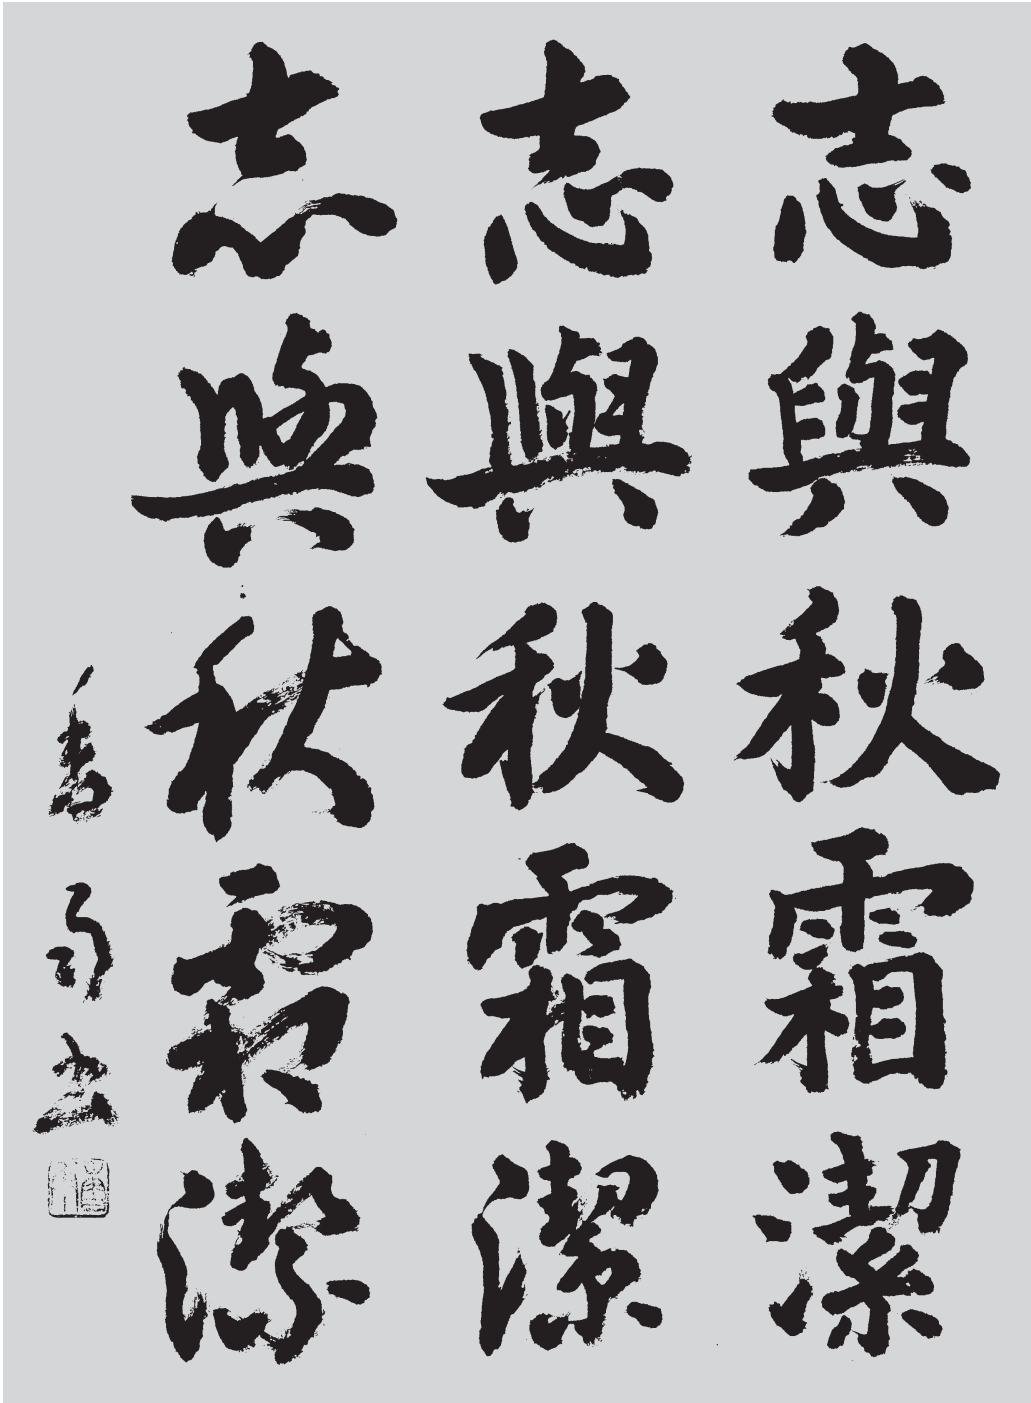 志與秋霜潔
志與秋霜潔
志與秋霜潔